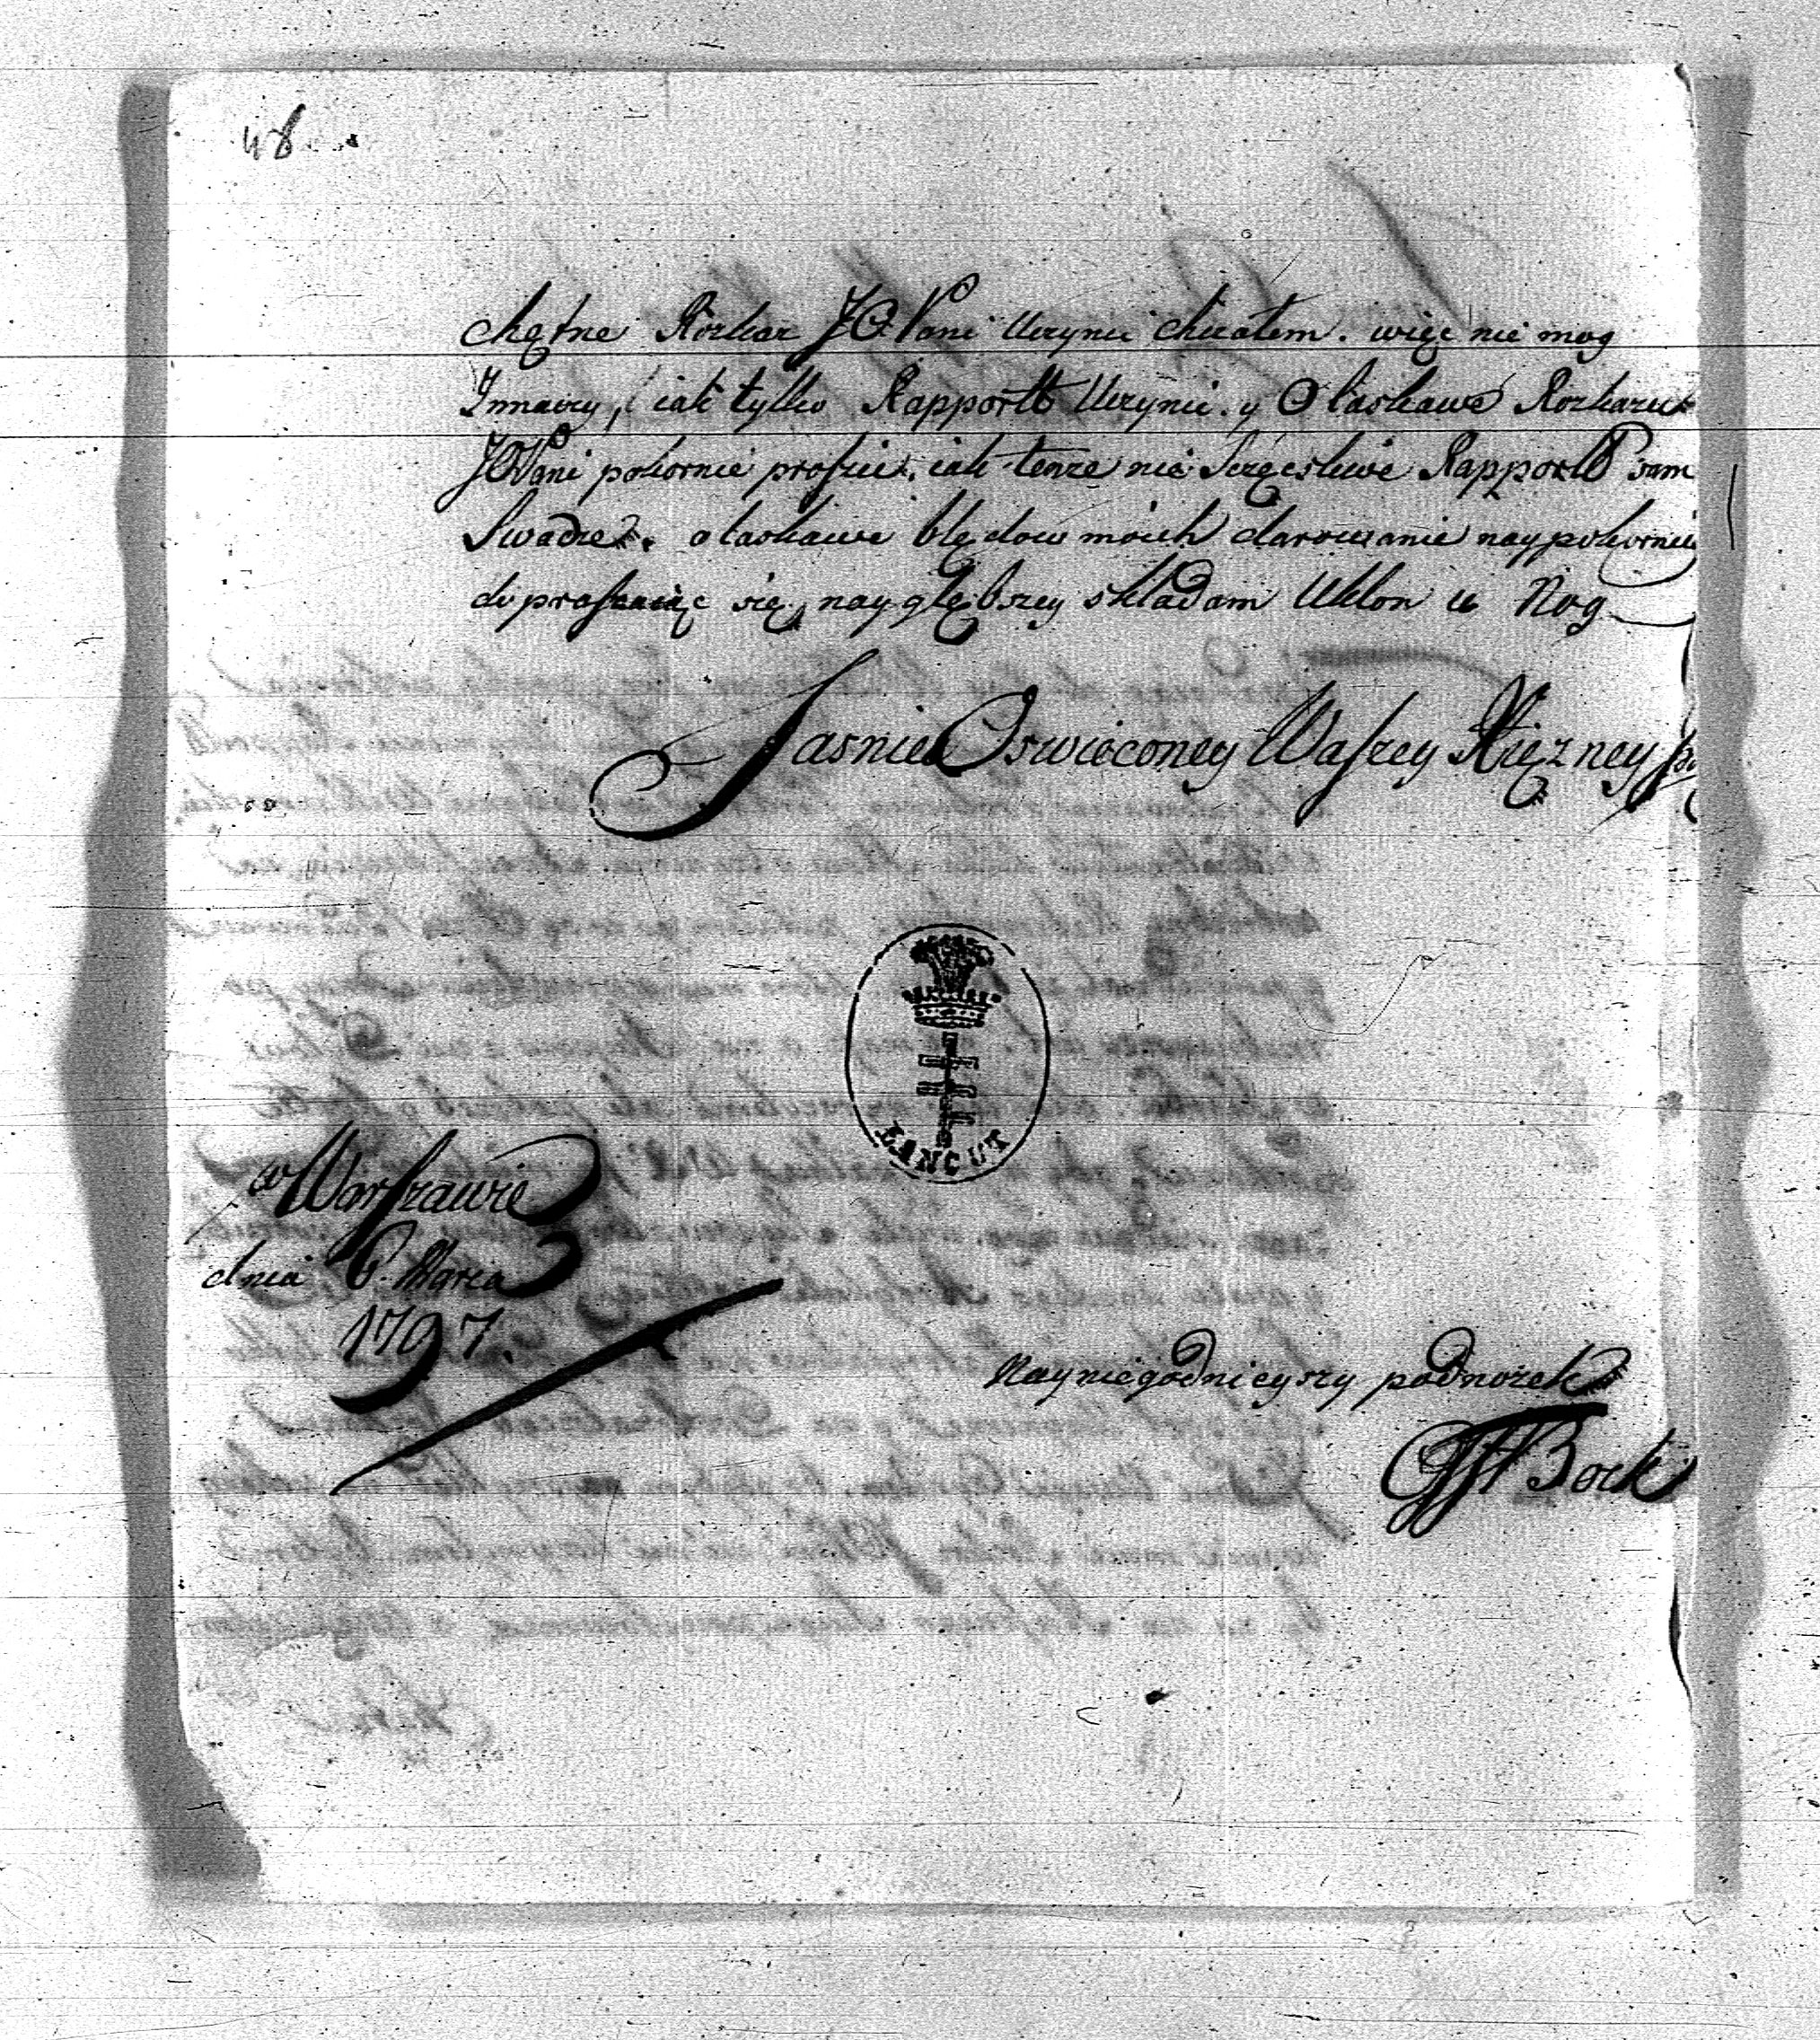 48
chętne Rozkaz JO Pani Uczynic chciałem. więc nie mog
Innaczy, iak tylko Rapportt Uczynic. y O łaskawe Rozkazu
JO Pani pokornie proszic, iak tenze nie Sczęcsliwe Rapportt sam
Swadze. o łaskawe błędow moich darowanie naypokorniey
dopraszaiąc się, naygłębszey składam Ukłon u Nog
Jasnie Oswieconey Waszey Xięzney
ŁANCUT
w Warszawie
dnia 6. Marca
1797.
Nayniegodnieyszy podnozek
Bock